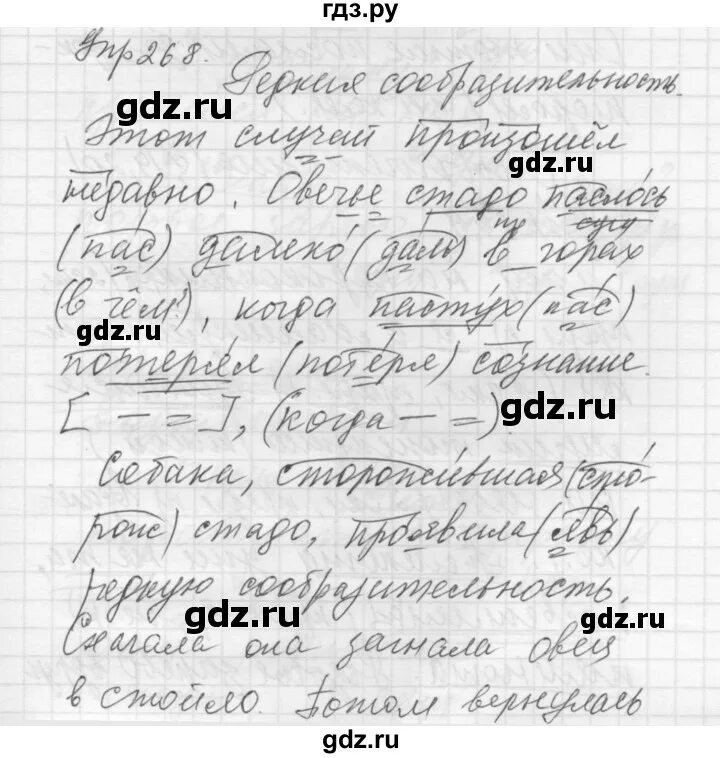 гдз.ру
Упр 268.
Редкая сообразительность.
gdz.ru
Этот случай произошёл
недавно. Овечье стадо паслось
сущ
пр
(пас) далеко (даль) в горах
gdz.ru
(в чём?), когда пастух (пас)
потерял (потеря) сознание.
[ – = ], (когда – =).
gdz.ru
Собака, сторожившая (сто-
рож) стадо, проявила (явь)
gdz.ru
редкую сообразительность.
gdz.ru
Сначала она загнала овец
gdz.ru
в стойло. Потом вернулась
gdz.ru